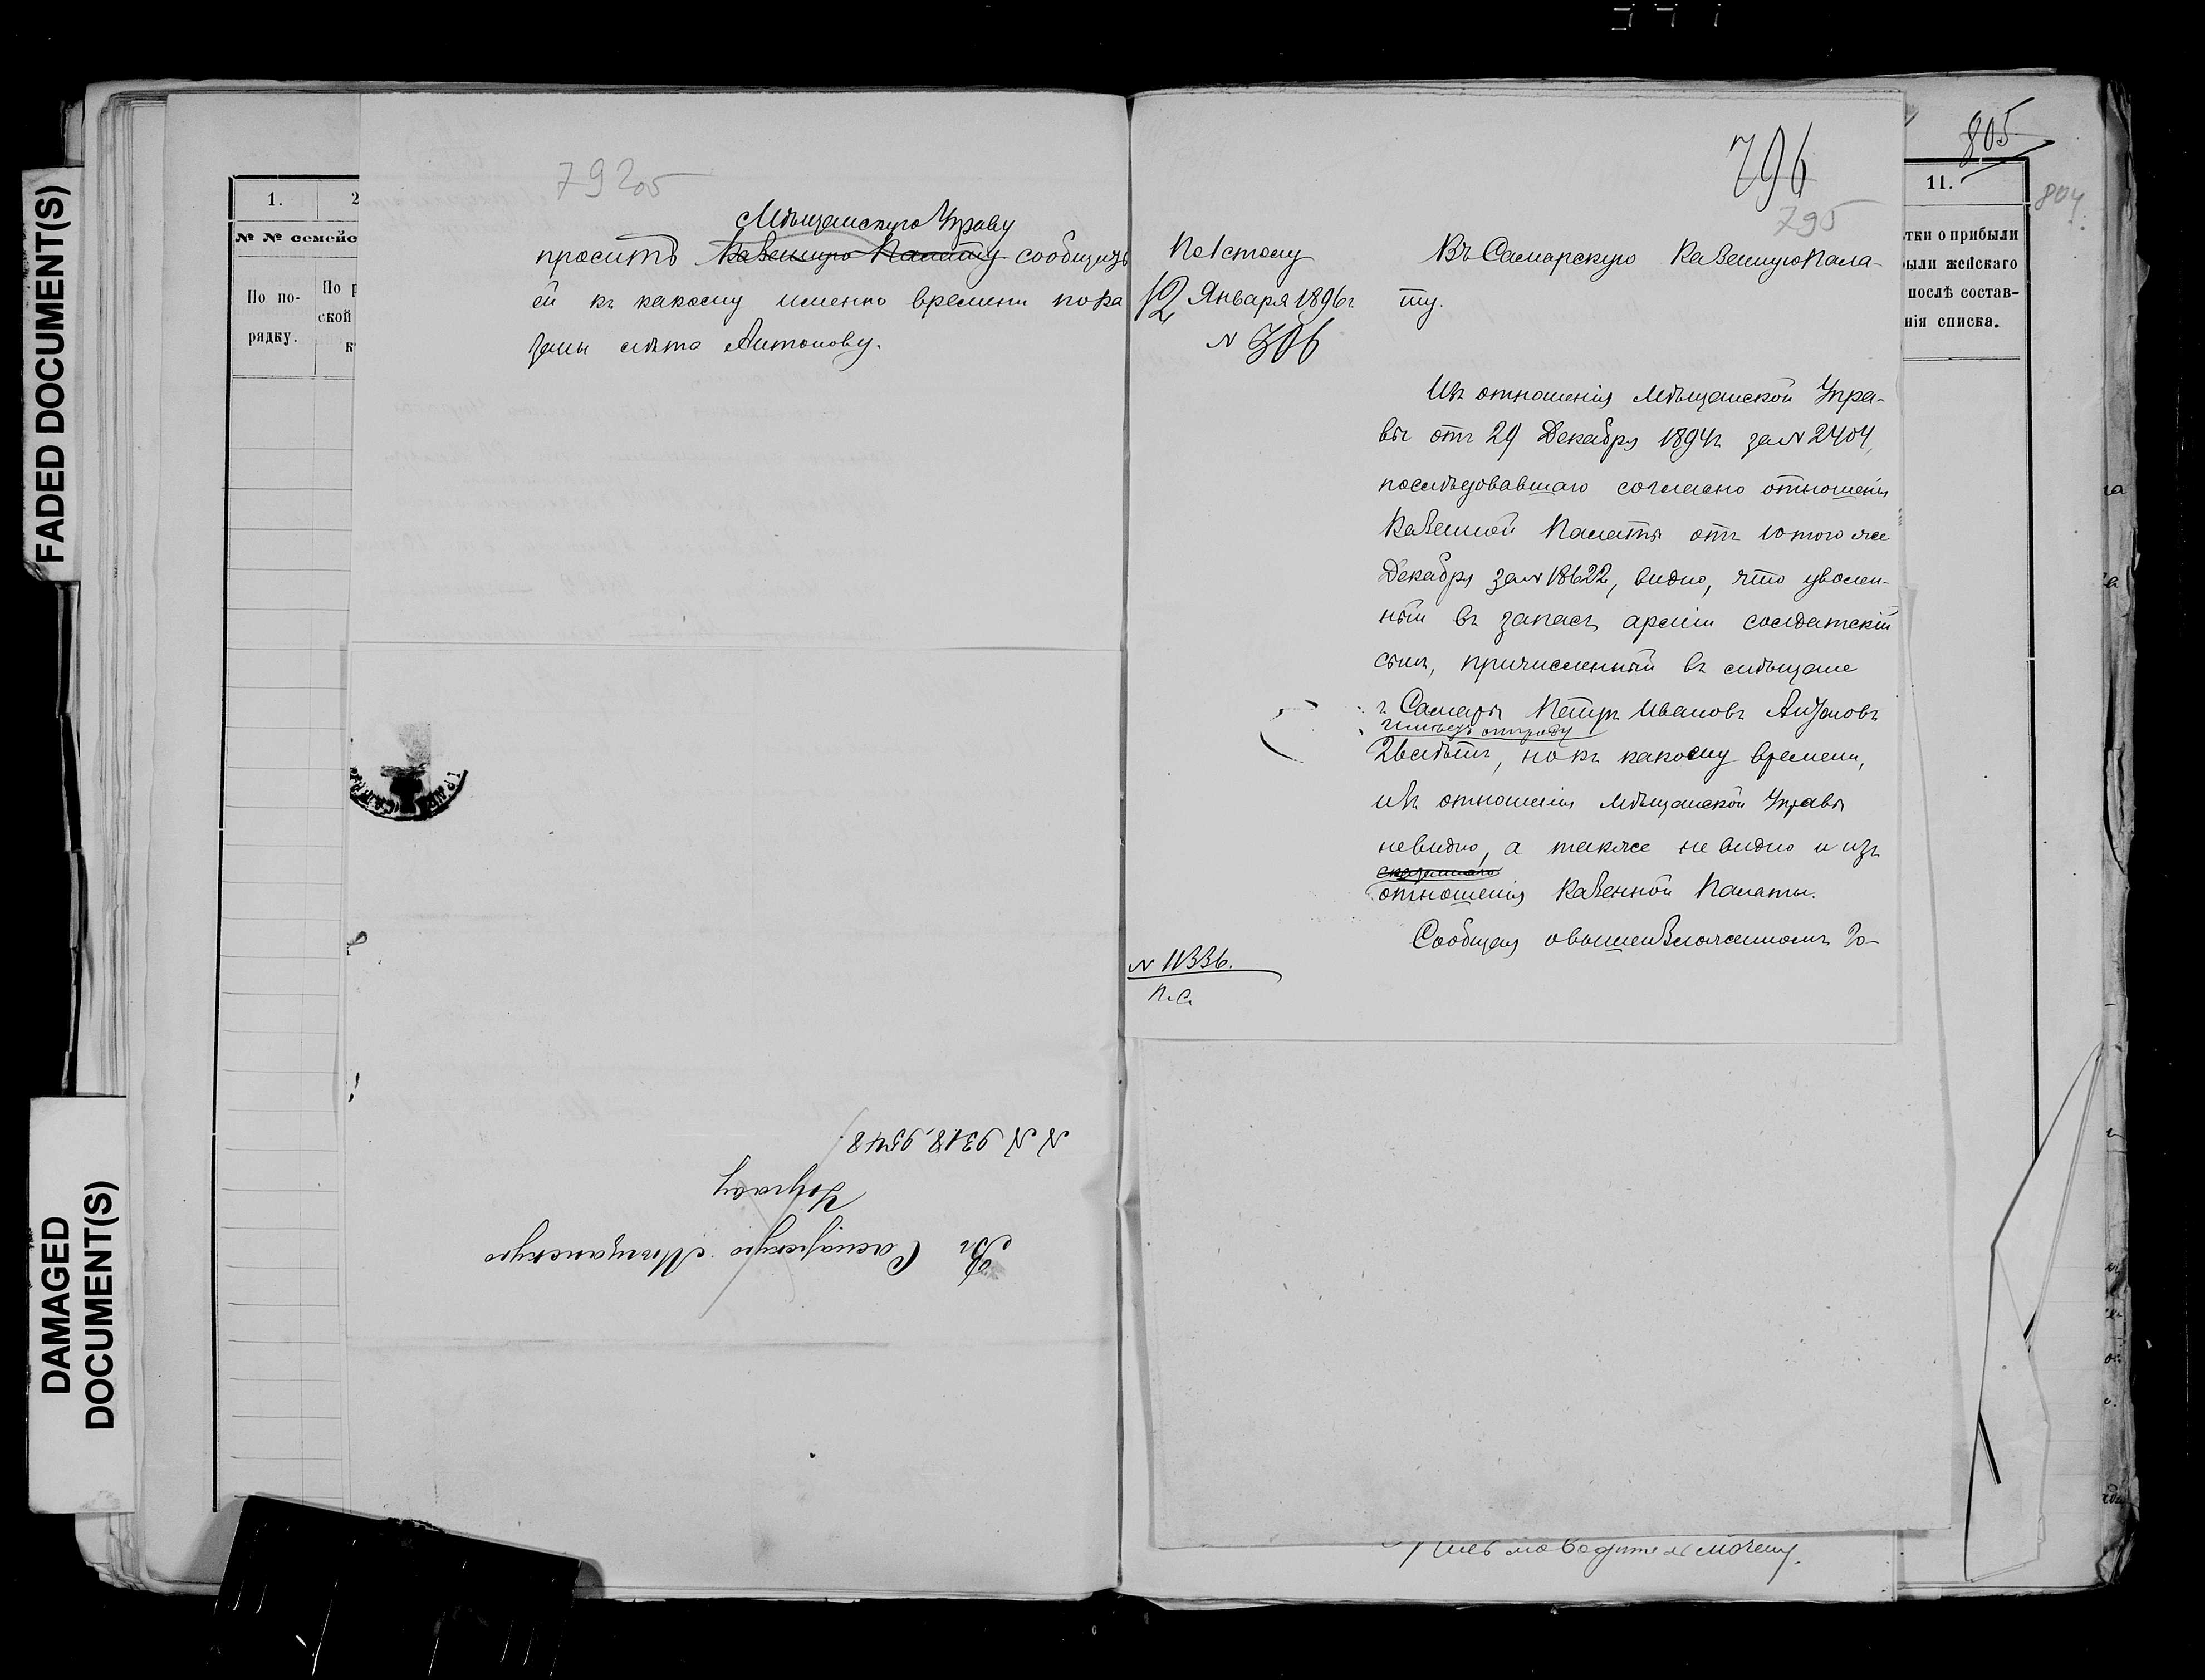 FADED DOCUMENT(S)
DAMAGED
DOCUMENT(S)
1.
2
№ № семейс
По по-
рядку.
По р
ской
к
79205
Мѣщанскую Управу
проситъ Казенную Палату сообщить
ей къ какому именно времени пока
заны лѣта Антонову.
№№ 9318, 9548
Управу
Въ Самарскую Мѣщанскую
796
795
По 1 столу
12 Января 1896 г
№ 306
Въ Самарскую Казенную Пала-
ту.
Изъ отношенія Мѣщанской Упра-
вы отъ 29 Декабря 1894 г за № 2404,
послѣдовавшаго согласно отношенія
Казенной Палаты отъ 10 того же
Декабря за № 18622, видно, что уволен-
ный въ запасъ арміи солдатскій
сынъ, причисленный въ мѣщане
г. Самары Петръ Ивановъ Антоновъ
имѣетъ отъ роду
26 лѣтъ, но къ какому времени,
изъ отношенія Мѣщанской Управы
невидно, а также не видно и изъ
сказаннаго
отношенія Казенной Палаты.
Сообщая о вышеизложенномъ Го-
№ 11336.
П.С.
805
804
11.
тки о прибыли
ыли женскаго
послѣ состав-
нія списка.